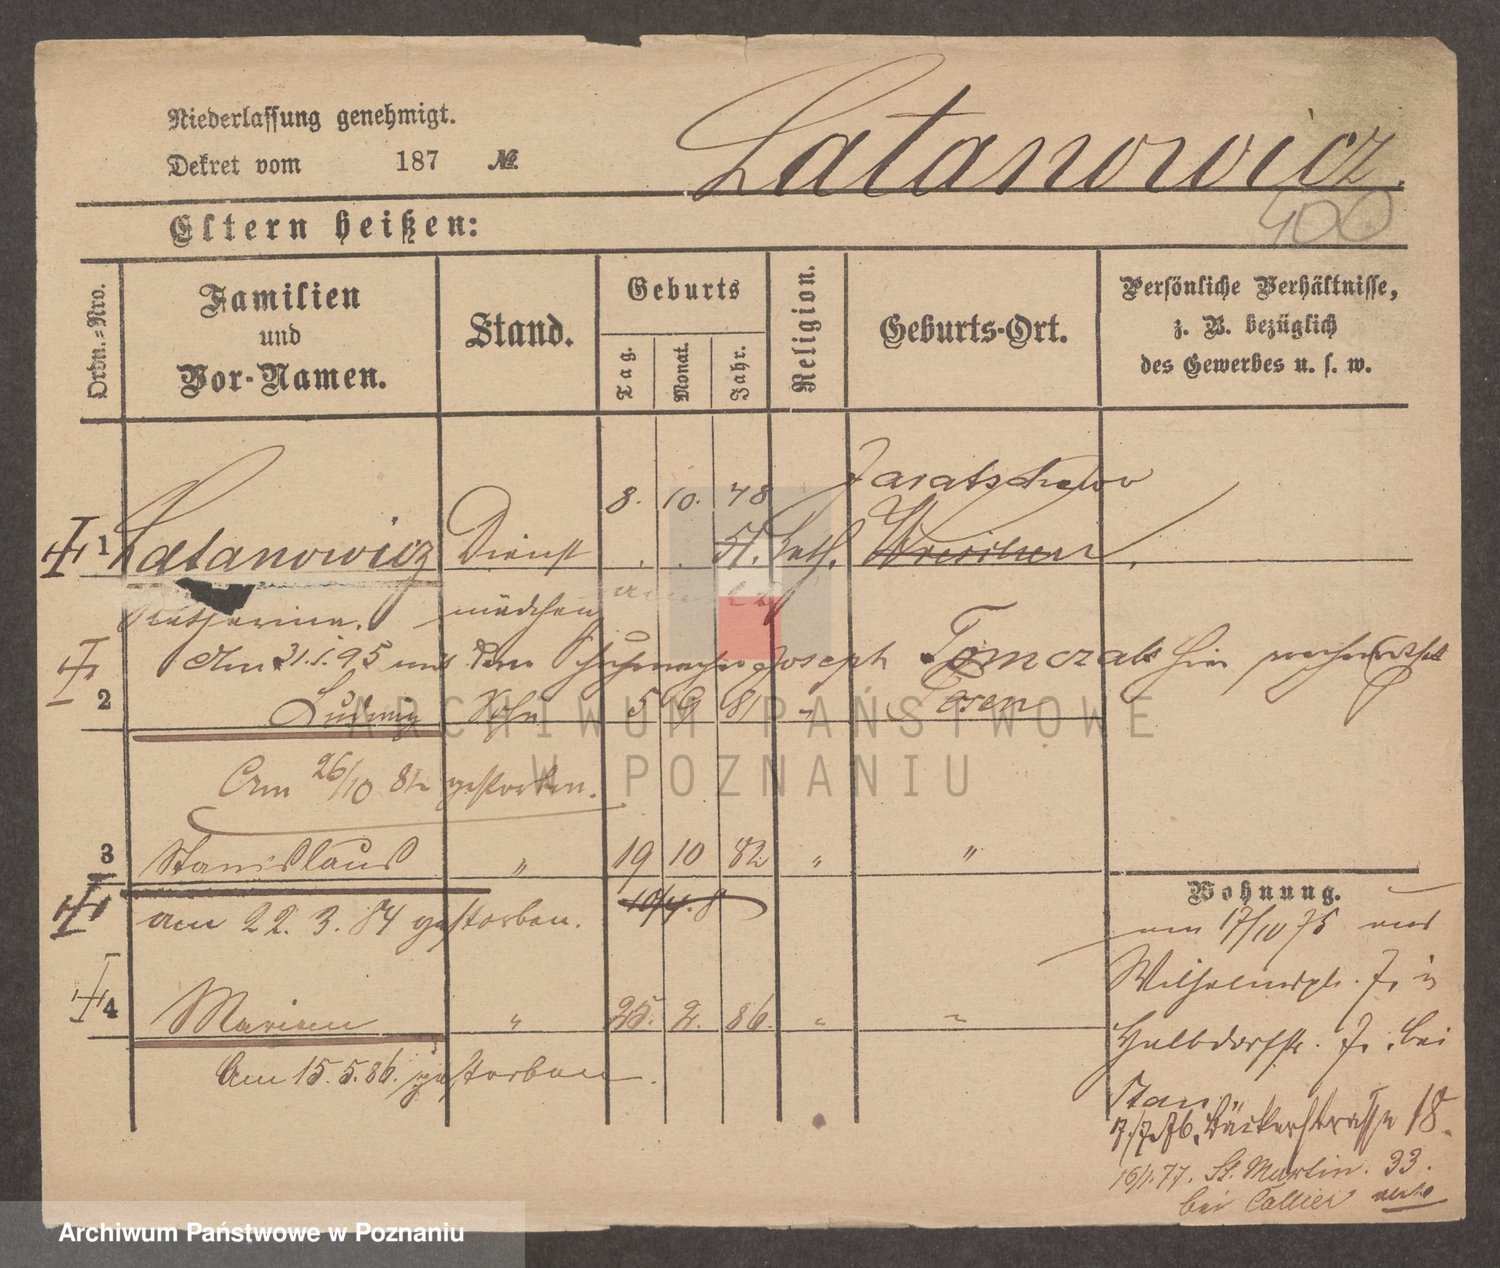 Niederlassung genehmigt.
Dekret vom 187 №
Latanowicz.
400
Eltern heißen:
Ordn.-Nro.
Familien
und
Vor-Namen.
Stand.
Geburts
Tag.
Monat.
Jahr.
Religion.
Geburts-Ort.
Persönliche Verhältnisse,
z. B. bezüglich
des Gewerbes u. s. w.
8. 10. 48 Jaratschewo
1 Latanowicz Dienst 51. kath. Wreschen
Katharina. mädchen
Am 31.1.95 mit dem Schuhmacher Joseph Tomczak hier
2 Ludwig Sohn 5 9 81 " Posen
Am 26/10 82 gestorben.
3 Stanislaus " 19 10 82 " "
am 22. 3. 84 gestorben.
4 Mariem " 25. 2. 86. " "
Am 15. 5. 86. gestorben.
Wohnung.
am 17/10 75 aus
Wilhelmspl. 7. in
Halbdorfstr. 7. bei
Stan
7./7.76. Bäckerstrasse 18.
16/1.77. St. Martin. 33.
bei Callier
ARCHIWUM PAŃSTWOWE
W POZNANIU
Archiwum Państwowe w Poznaniu